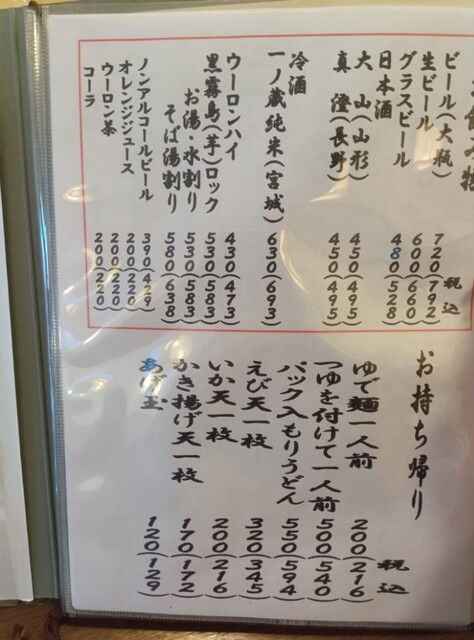 お飲み物
税込
ビール(大瓶) 720(792)
生ビール 600(660)
グラスビール 480(528)
日本酒
大 山(山形) 450(495)
真 澄(長野) 450(495)
冷酒
一ノ蔵純米(宮城) 630(693)
ウーロンハイ 430(473)
黒霧島(芋)ロック 530(583)
お湯・水割り 530(583)
そば湯割り 580(638)
ノンアルコールビール 390(429)
オレンジジュース 200(220)
ウーロン茶 200(220)
コーラ 200(220)
お持ち帰り
税込
ゆで麺一人前 200(216)
つゆを付けて一人前 500(540)
パック入もりうどん 550(594)
えび天一枚 320(345)
いか天一枚 200(216)
かき揚げ天一枚 170(172)
あげ玉 120(129)